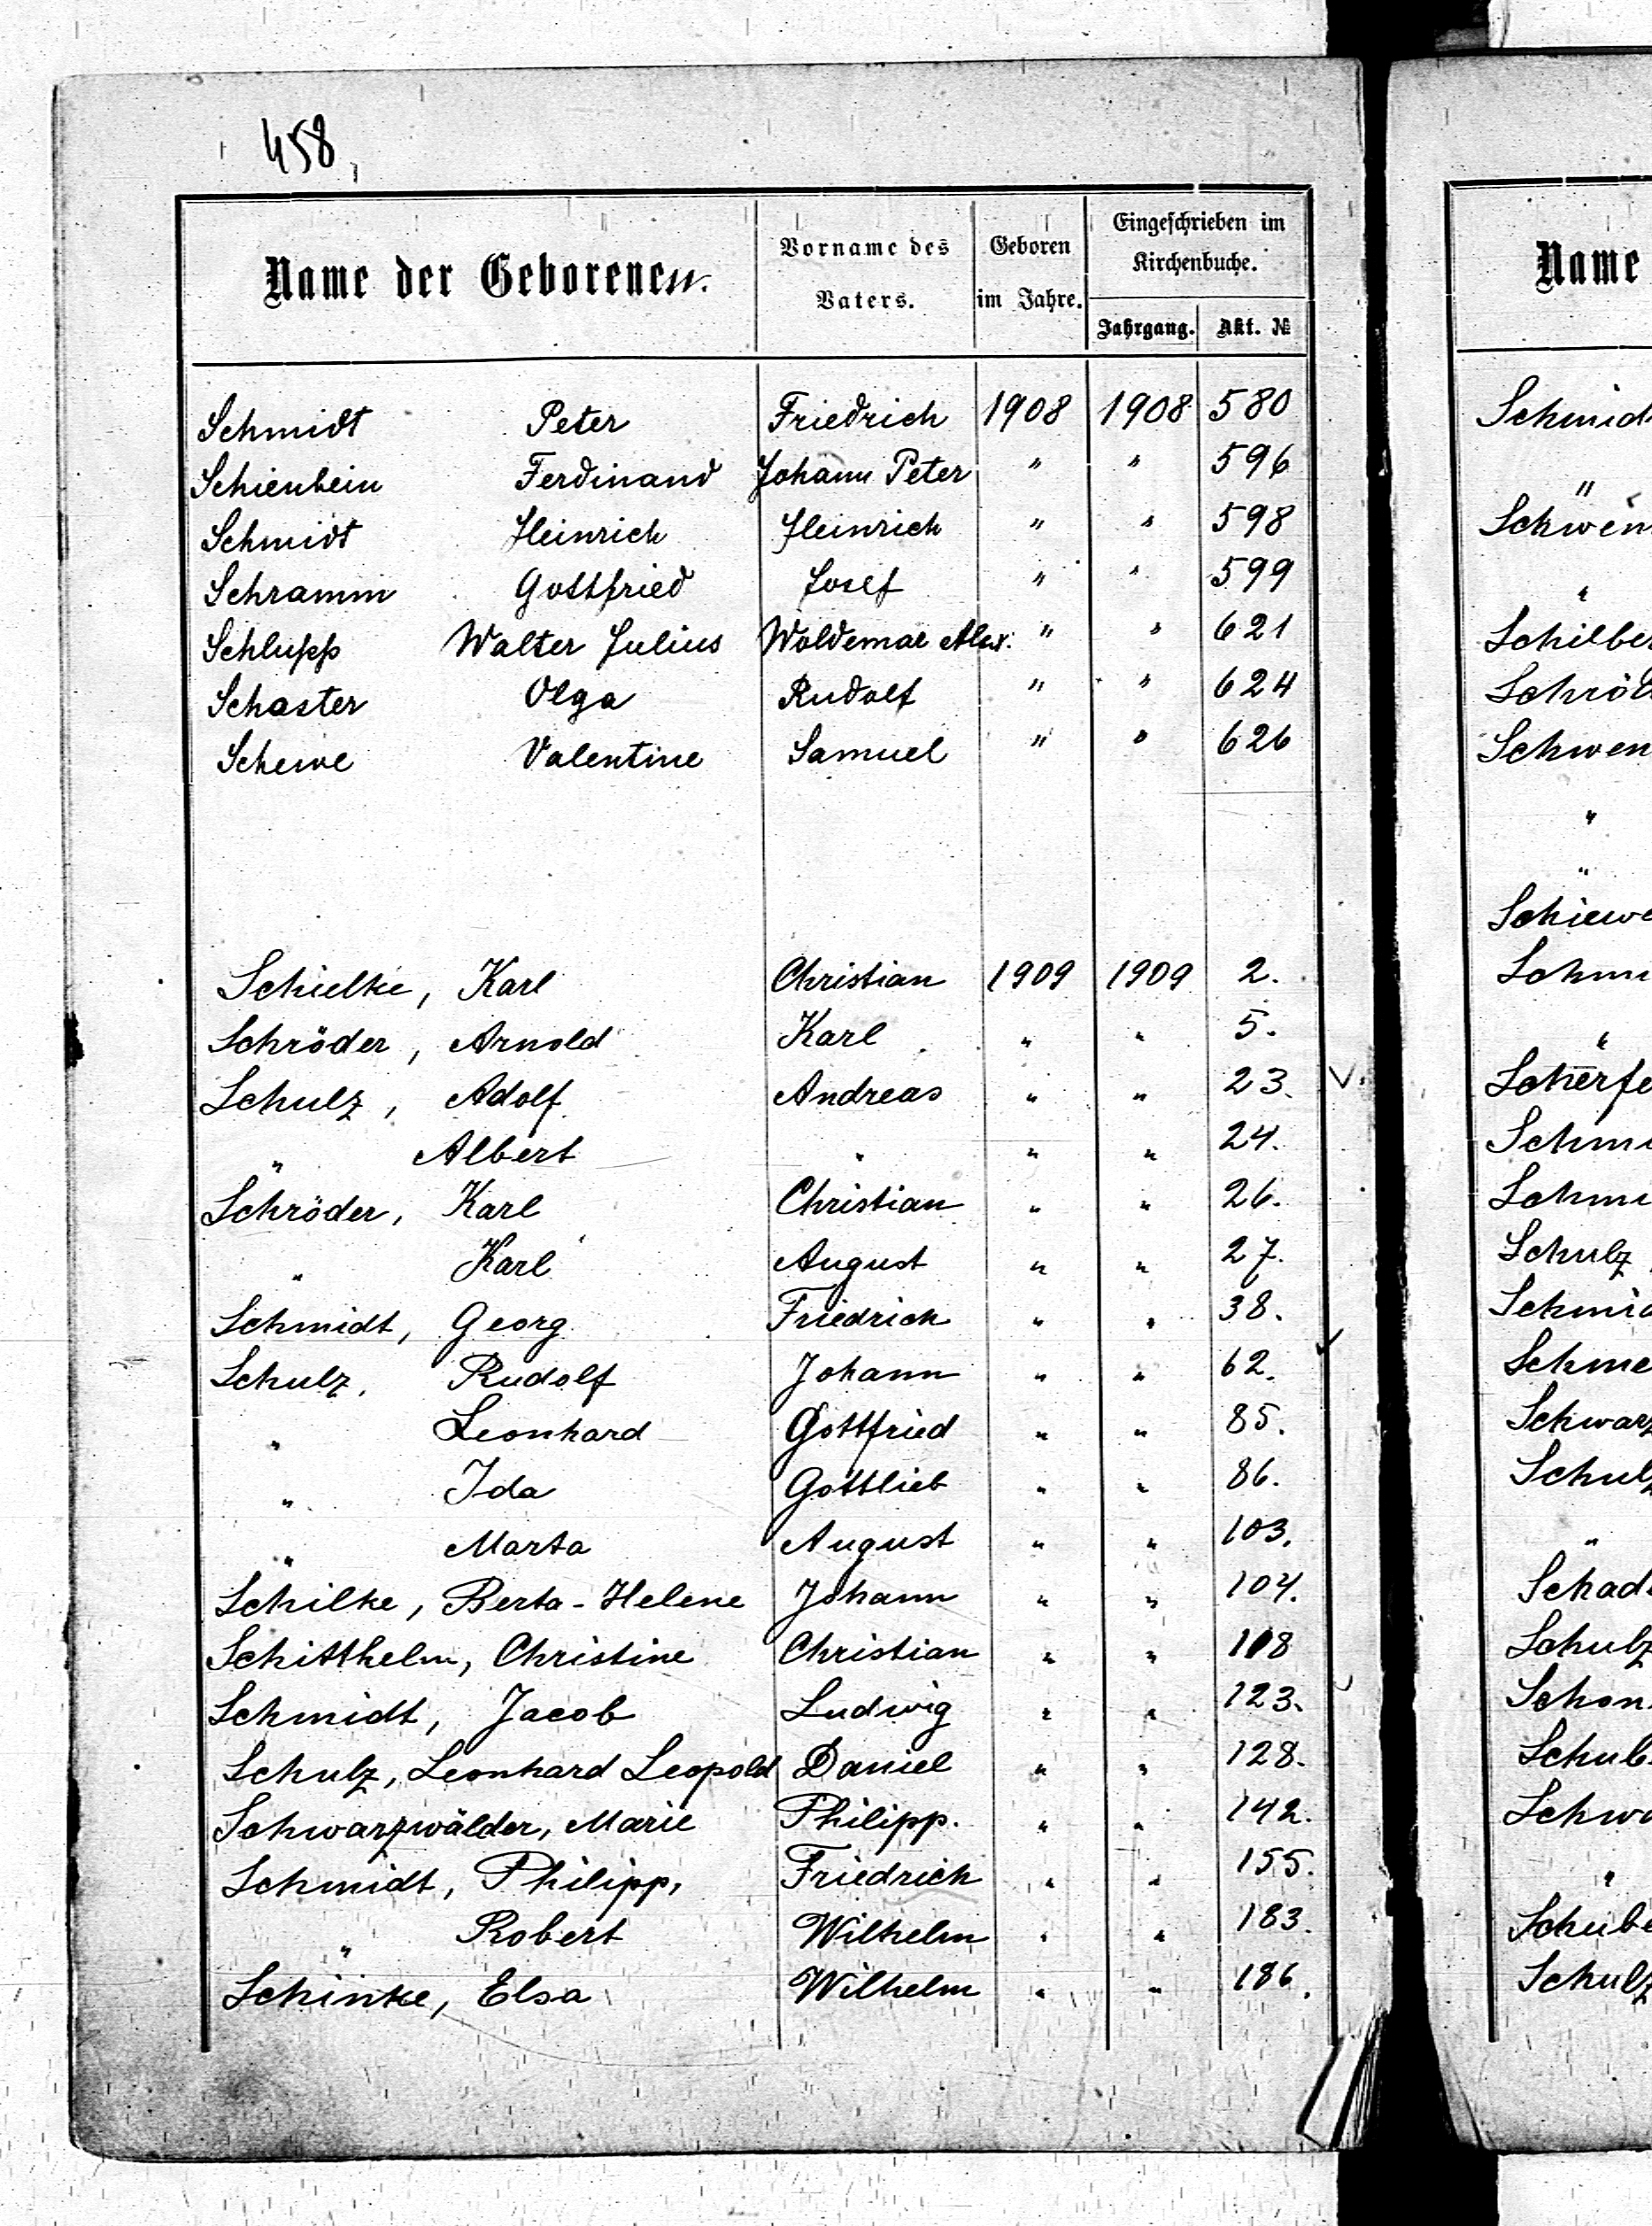 458
Name der Geborenen. Vorname des Vaters. Geboren im Jahre. Eingeschrieben im Kirchenbuche. Jahrgang. Akt. №
Schmidt Peter Friedrich 1908 1908 580
Schienbein Ferdinand Johann Peter " " 596
Schmidt Heinrich Heinrich " " 598
Schramm Gottfried Josef " " 599
Schlupp Walter Julius Woldemar Alex. " " 621
Schaster Olga Rudolf " " 624
Schewe Valentine Samuel " " 626
Schielke, Karl Christian 1909 1909 2.
Schröder, Arnold Karl " " 5.
Schulz, Adolf Andreas " " 23. V.
" Albert " " " 24.
Schröder, Karl Christian " " 26.
" Karl August " " 27.
Schmidt, Georg Friedrich " " 38.
Schulz, Rudolf Johann " " 62.
" Leonhard Gottfried " " 85.
" Ida Gottlieb " " 86.
" Marta August " " 103.
Schilke, Berta-Helene Johann " " 104.
Schitthelm, Christine Christian " " 118
Schmidt, Jacob Ludwig " " 123.
Schulz, Leonhard Leopold Daniel " " 128.
Schwarzwälder, Marie Philipp. " " 142.
Schmidt, Philipp, Friedrich " " 155.
" Robert Wilhelm " " 183.
Schinke, Elsa Wilhelm " " 186.
Name
Schmid
"
Schwen
"
Schilbe
Schröd
Schwen
"
"
Schiewe
Schm
"
Scherfe
Schm
Schm
Schulz
Schmid
Schme
Schwarz
Schulz
"
Schad
Schulz
Schon
Schub
Schwa
"
Schube
Schulz